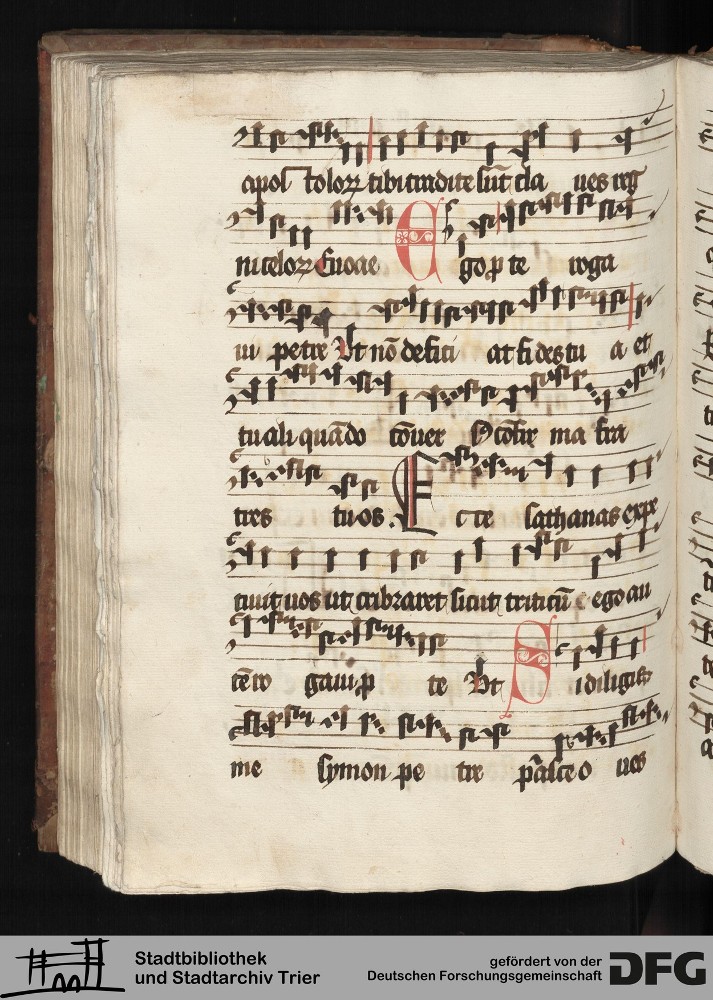 apostolorꝝ tibi tradite sūt cla ues reg
ni celorꝝ Euouae Ego ꝓ te roga
ui petre Vt nō defici at fides tu a et
tu aliquādo cōuer ma fra
tres tuos. Ecce sathanas expe
tiuit uos ut cribraret sicut triticū ego au
tē ro gaui ꝓ te Vt Si diligis
me symon pe tre pasce o ues
Stadtbibliothek
und Stadtarchiv Trier
gefördert von der
Deutschen Forschungsgemeinschaft
DFG